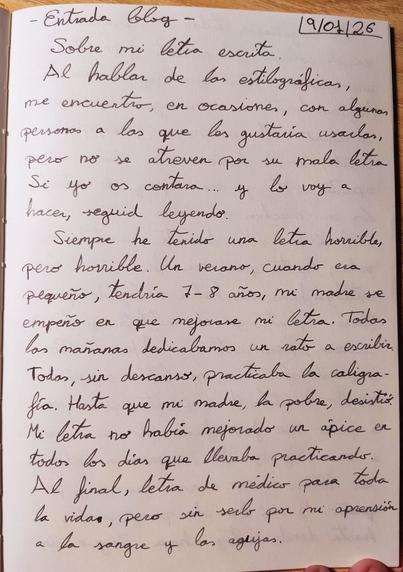 - Entrada blog -
19/01/26
Sobre mi letra escrita.
Al hablar de las estilográficas,
me encuentro, en ocasiones, con algunas
personas a las que les gustaría usarlas,
pero no se atreven por su mala letra
Si yo os contara... y lo voy a
hacer, seguid leyendo.
Siempre he tenido una letra horrible,
pero horrible. Un verano, cuando era
pequeño, tendría 7-8 años, mi madre se
empeño en que mejorase mi letra. Todas
las mañanas dedicabamos un rato a escribir.
Todas, sin descanso, practicaba la caligra-
fía. Hasta que mi madre, la pobre, desistió.
Mi letra no había mejorado un ápice en
todos los días que llevaba practicando.
Al final, letra de médico para toda
la vida, pero sin serlo por mi aprensión
a la sangre y las agujas.